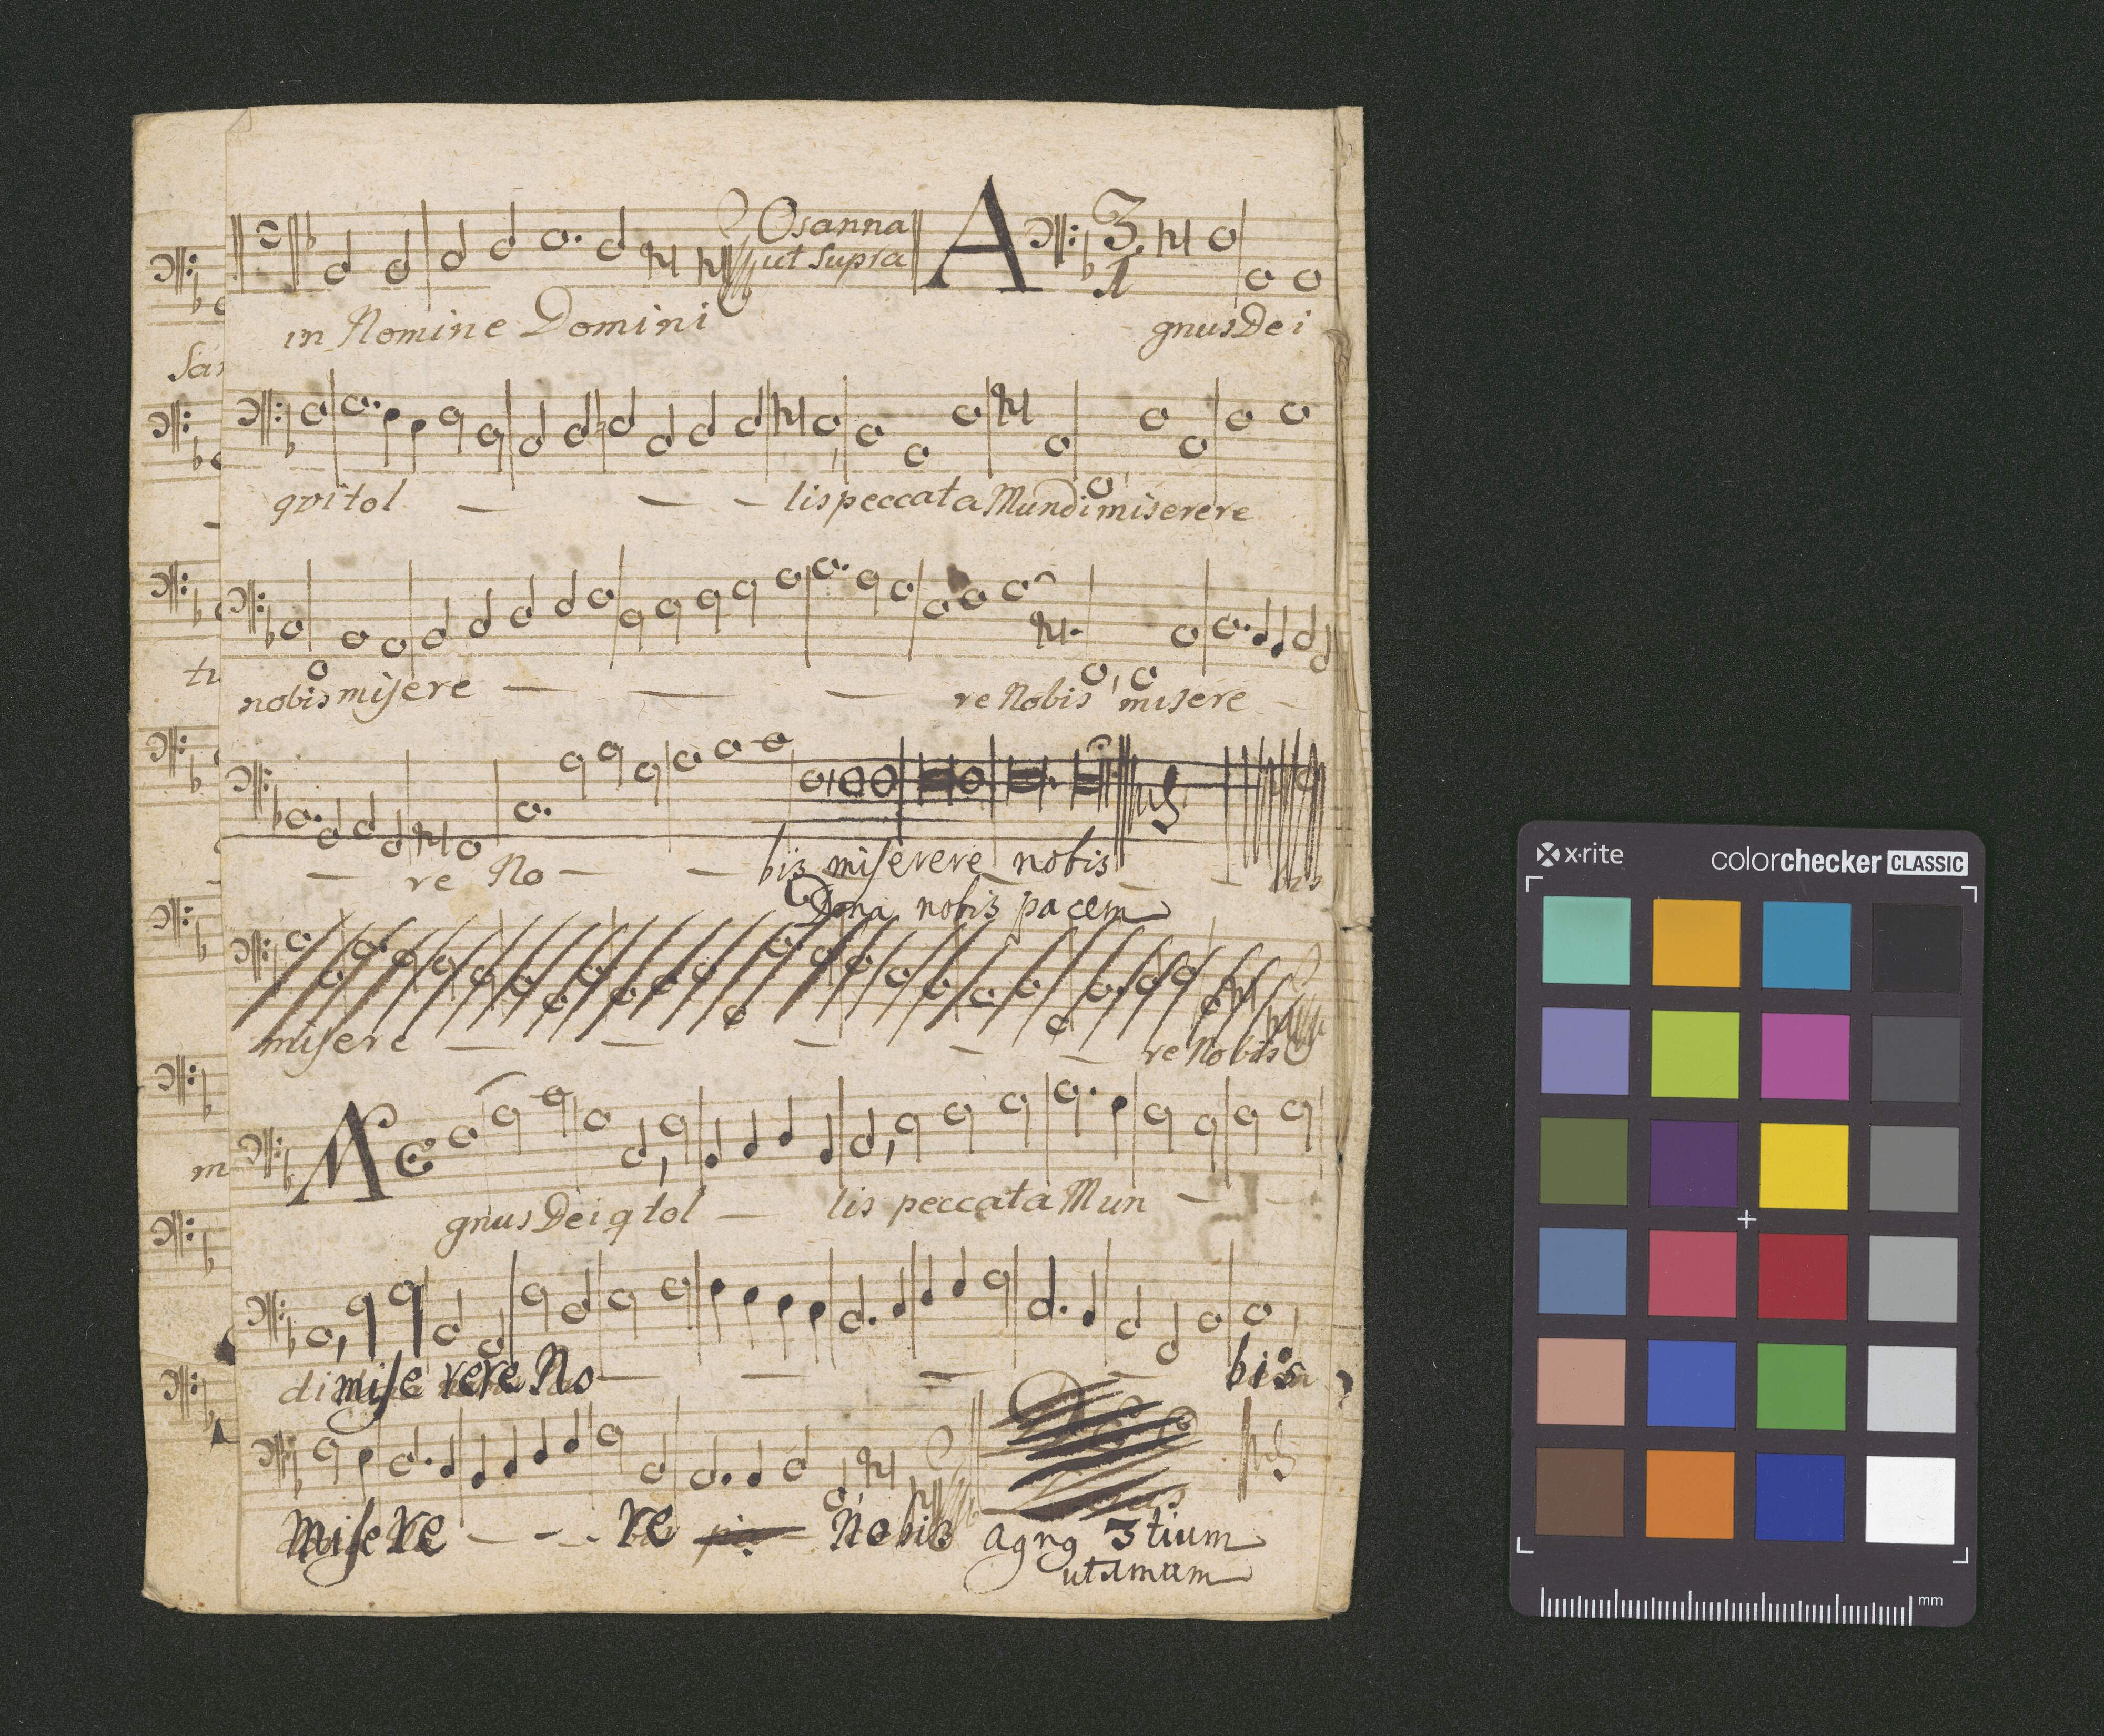 Osanna
ut supra
A 3
1
in Nomine Domini gnus Dei
qvi tol - - - lis peccata Mundi miserere
nobis misere - - - re Nobis misere -
- re No - - bis miserere nobis
Dona nobis pacem
misere - - - - - re Nobis
A
gnus Dei q tol - lis peccata Mun - -
di mise rere No - - - - bis
Mise Re - - - Re Nobis agng 3tium
ut imum
Sa
tu
m
x·rite colorchecker CLASSIC
mm